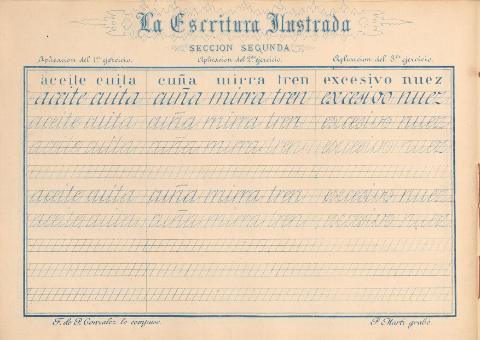 La Escritura Ilustrada
SECCION SEGUNDA
Aplicacion del 1er ejercicio. Aplicacion del 2º ejercicio. Aplicacion del 3er ejercicio.
aceite cuita cuña mirra tren excesivo nuez
aceite cuita cuña mirra tren excesivo nuez
aceite cuita cuña mirra tren excesivo nuez
aceite cuita cuña mirra tren excesivo nuez
aceite cuita cuña mirra tren excesivo nuez
aceite cuita cuña mirra tren excesivo nuez
F. de P. Gonzalez lo compuso. P. Marti grabó.